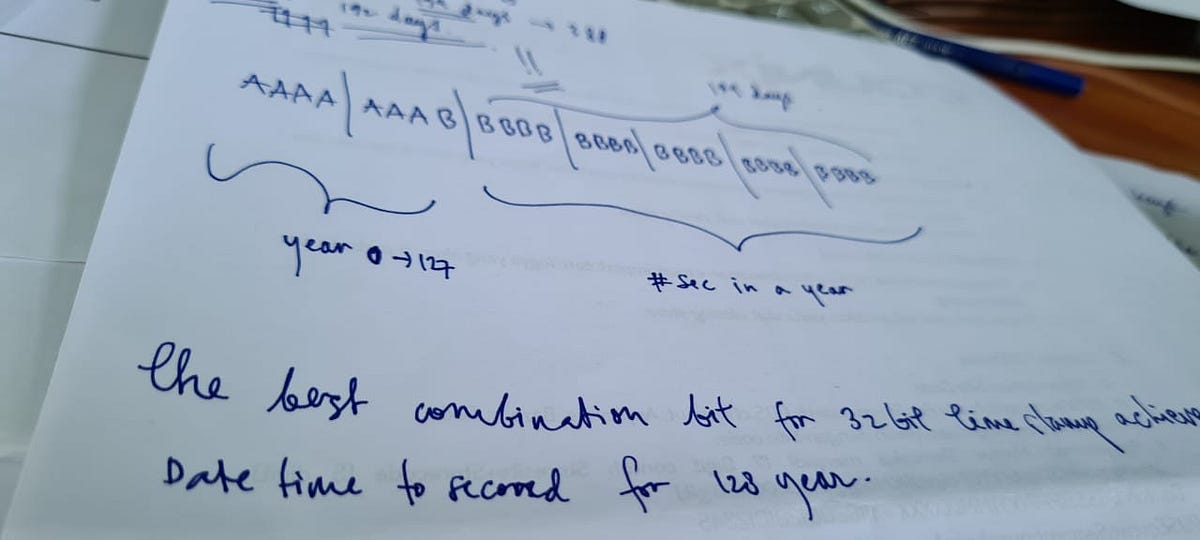 192 days → 388
192 days
!!
194 days
AAAA|AAAB|BBBB|BBBB|BBBB|BBBB|BBBB
year 0 → 127
# sec in a year
The best combination bit for 32 bit time stamp achieve
Date time to second for 128 year.